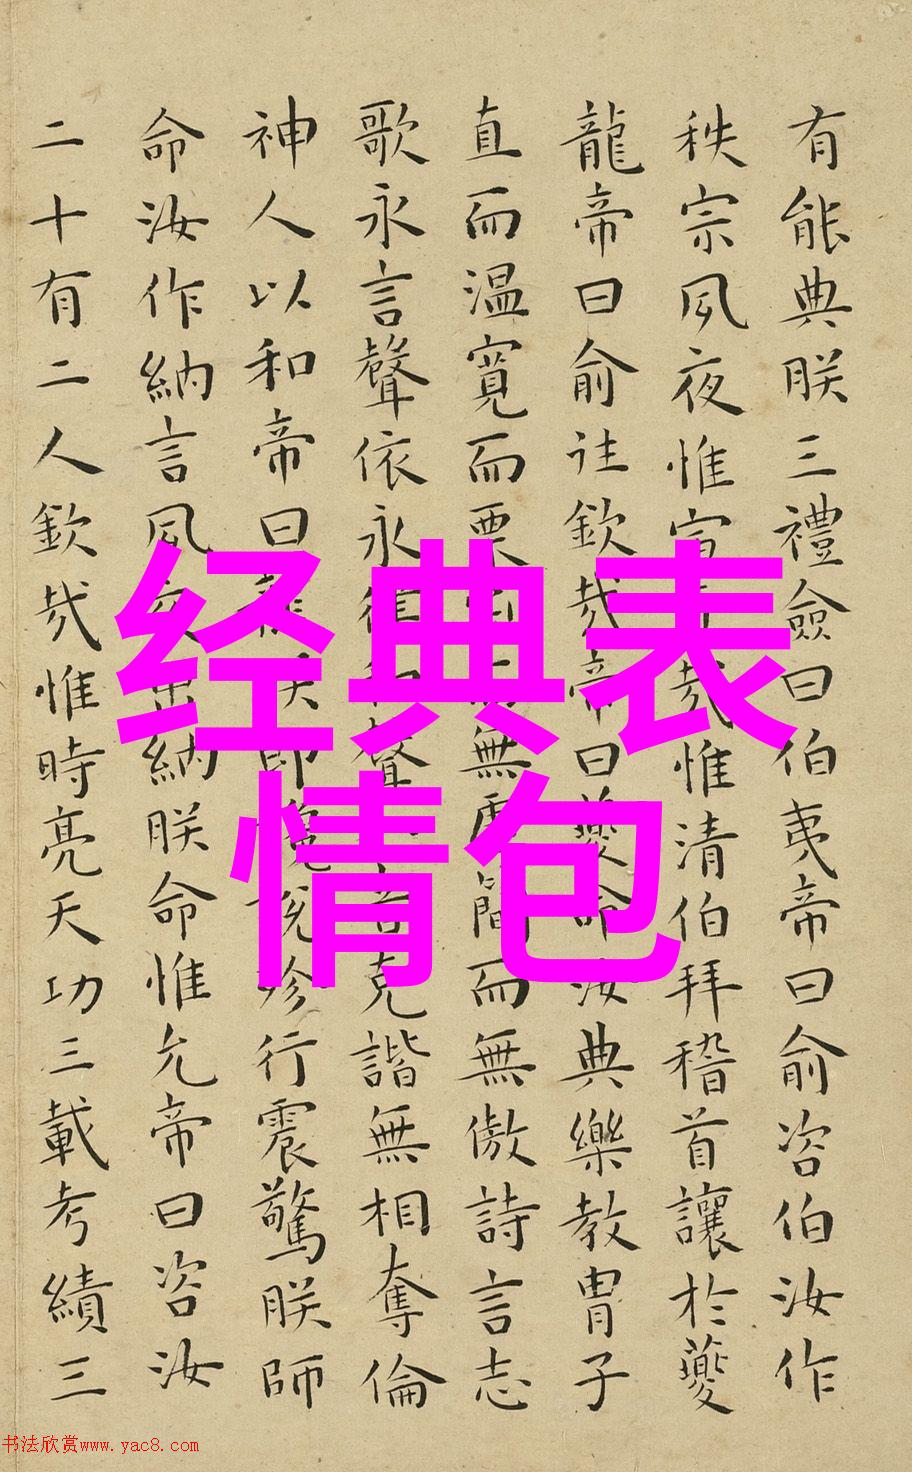 有能典朕三禮僉曰伯夷帝曰俞咨伯汝作
秩宗夙夜惟寅哉惟清伯拜稽首讓於夔
龍帝曰俞往欽哉帝曰夔命汝典樂教胄子
直而温寬而栗無虐簡而無傲詩言志
歌永言聲依永律和聲克諧無相奪倫
神人以和帝曰朕殄行震驚朕師
命汝作納言夙夜出納朕命惟允帝曰咨汝
二十有二人欽哉惟時亮天功三載考績三
经典表
情包
书法欣赏www.yac8.com